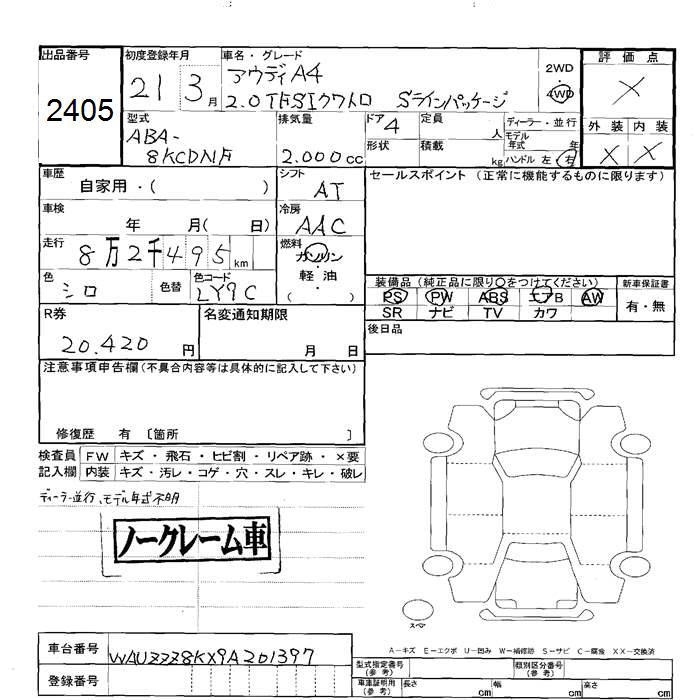 出品番号 初度登録年月 車名・グレード 評価点
2405 21 3月 アウディA4 2WD ×
2.0TFSIクワトロ Sラインパッケージ 4WD
型式 排気量 ドア 4 定員 人 ディーラー・並行 外装 内装
ABA- モデル年式 年
8KCDNF 2.000cc 形状 積載 kg ハンドル 左・右 × ×
車歴 シフト セールスポイント（正常に機能するものに限ります）
自家用・( ) AT
車検 冷房
年 月( 日) AAC
走行 燃料
8万2千495km ガソリン
・
軽油
( )
色 シロ 色替 色コード LY9C
装備品（純正品に限り○をつけてください） 新車保証書
PS PW ABS エアB AW 有・無
SR ナビ TV カワ
R券 名変通知期限 後日品
20.420円 月 日
注意事項申告欄(不具合内容等は具体的に記入して下さい)
修復歴 有 〔箇所 〕
検査員 FW キズ・飛石・ヒビ割・リペア跡・×要
記入欄 内装 キズ・汚レ・コゲ・穴・スレ・キレ・破レ
ディーラー並行、モデル年式不明
ノークレーム車
スペア
A−キズ E−エクボ U−凹み W−補修跡 S−サビ C−腐食 XX−交換済
車台番号 WAUZZZ8KX9A201397
登録番号
型式指定番号(参考) 類別区分番号(参考)
車庫証明用(参考) 長さ cm 幅 cm 高さ cm